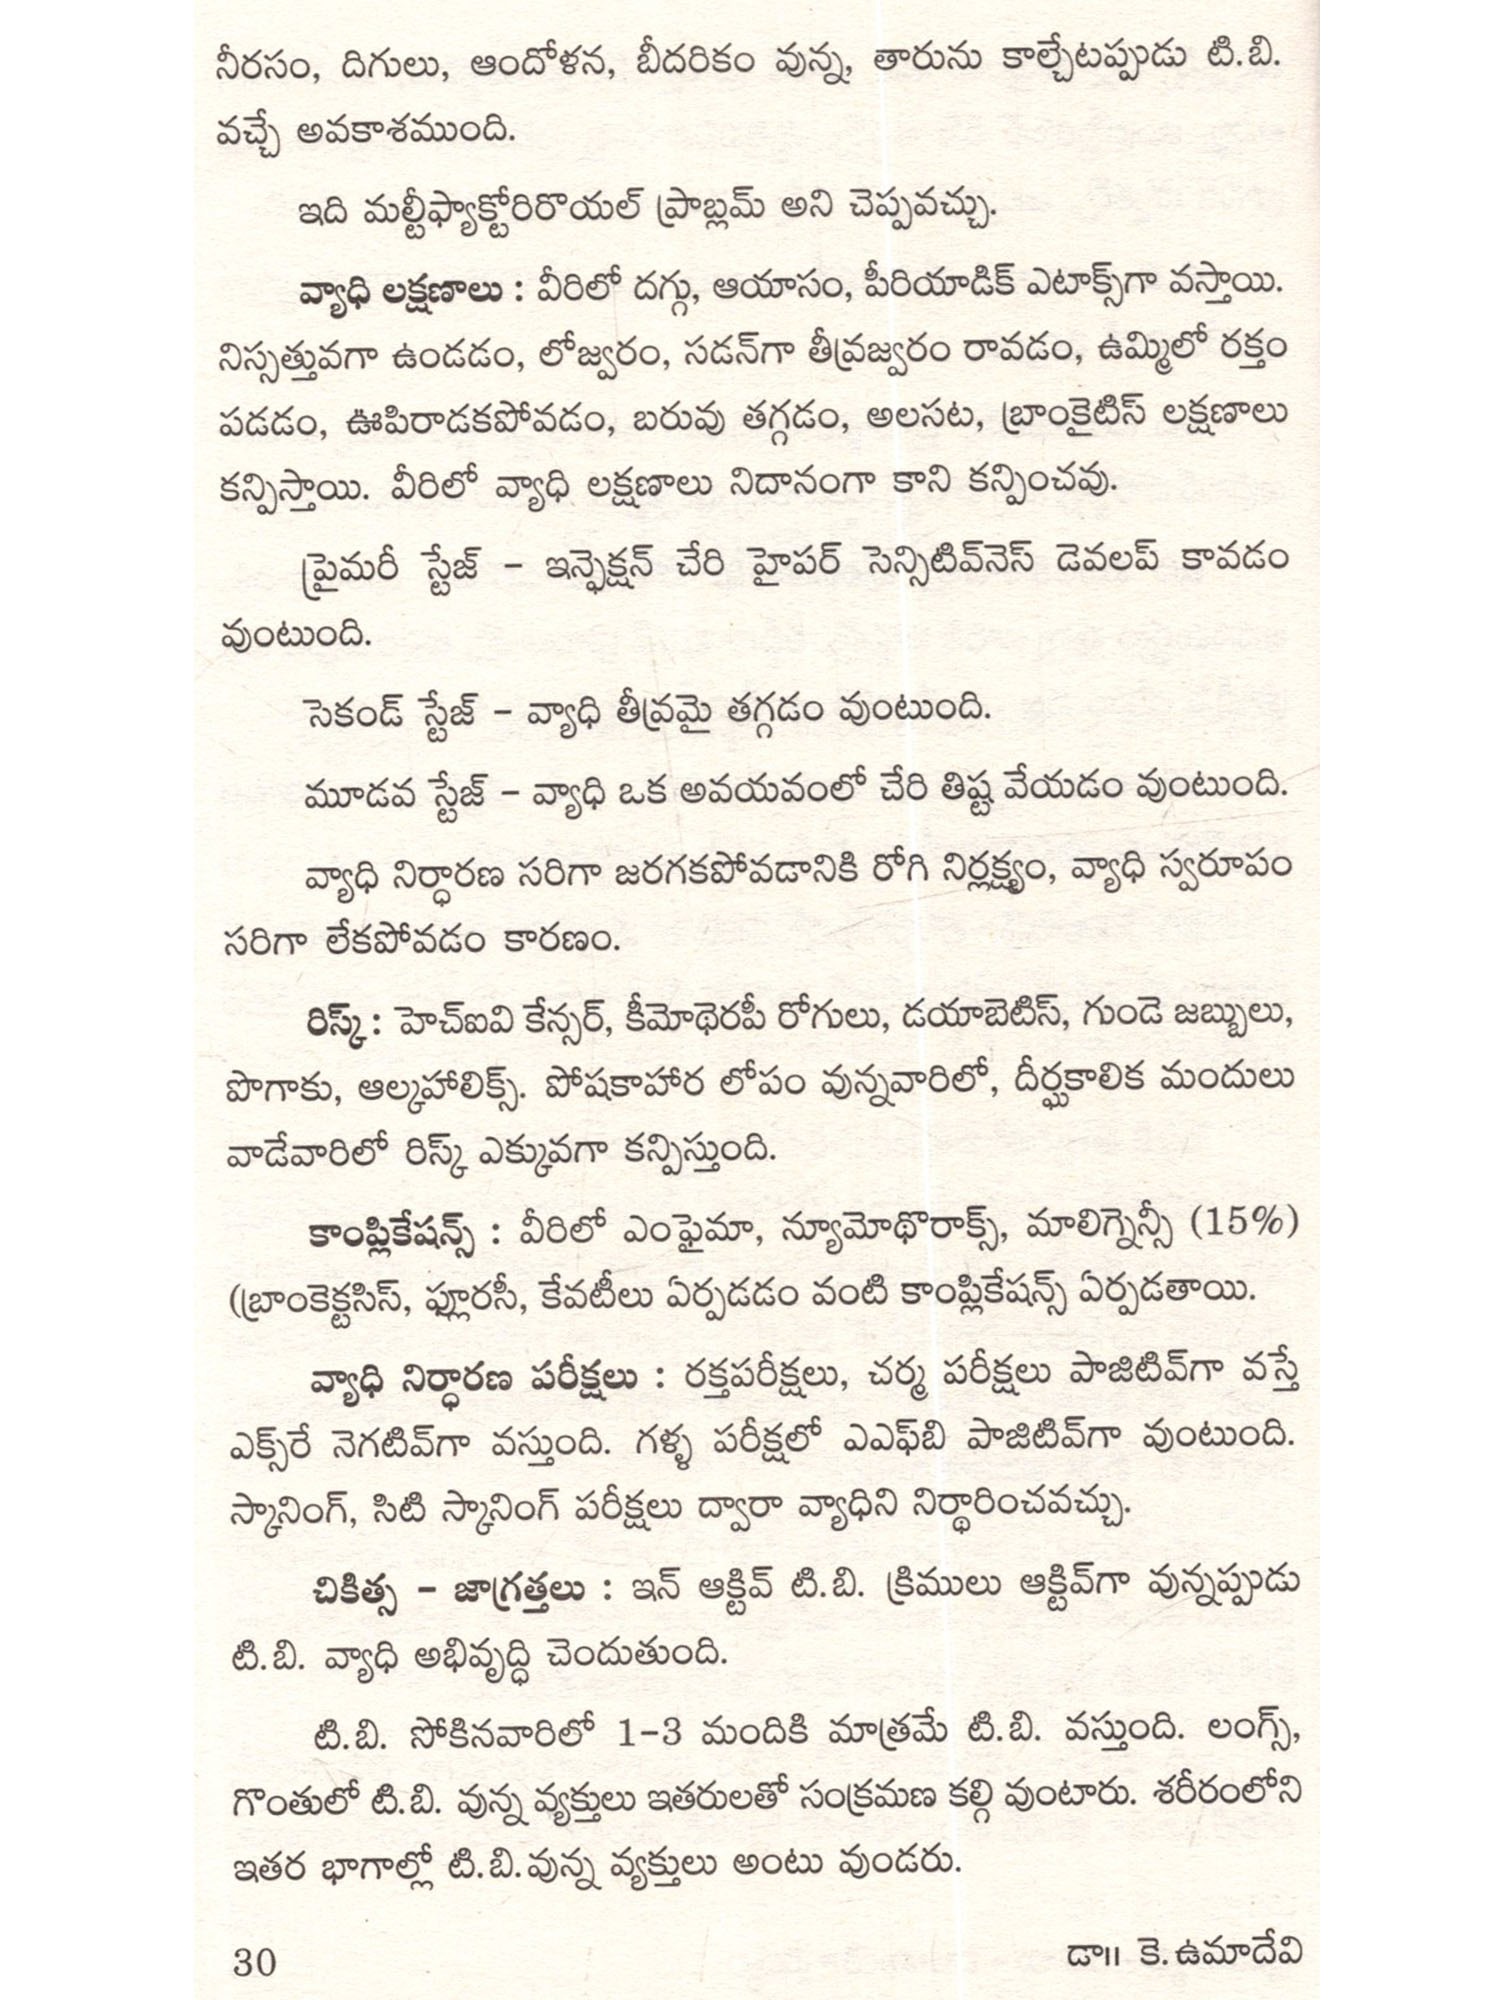 నీరసం, దిగులు, ఆందోళన, బీదరికం వున్న, తారును కాల్చేటప్పుడు టి.బి.
వచ్చే అవకాశముంది.
ఇది మల్టీఫ్యాక్టోరిరొయల్ ప్రాబ్లమ్ అని చెప్పవచ్చు.
వ్యాధి లక్షణాలు : వీరిలో దగ్గు, ఆయాసం, పీరియాడిక్ ఎటాక్స్‌గా వస్తాయి.
నిస్సత్తువగా ఉండడం, లోజ్వరం, సడన్‌గా తీవ్రజ్వరం రావడం, ఉమ్మిలో రక్తం
పడడం, ఊపిరాడకపోవడం, బరువు తగ్గడం, అలసట, బ్రాంకైటిస్ లక్షణాలు
కన్పిస్తాయి. వీరిలో వ్యాధి లక్షణాలు నిదానంగా కాని కన్పించవు.
ప్రైమరీ స్టేజ్ – ఇన్ఫెక్షన్ చేరి హైపర్ సెన్సిటివ్‌నెస్ డెవలప్ కావడం
వుంటుంది.
సెకండ్ స్టేజ్ – వ్యాధి తీవ్రమై తగ్గడం వుంటుంది.
మూడవ స్టేజ్ – వ్యాధి ఒక అవయవంలో చేరి తిష్ట వేయడం వుంటుంది.
వ్యాధి నిర్ధారణ సరిగా జరగకపోవడానికి రోగి నిర్లక్ష్యం, వ్యాధి స్వరూపం
సరిగా లేకపోవడం కారణం.
రిస్క్ : హెచ్ఐవి కేన్సర్, కీమోథెరపీ రోగులు, డయాబెటిస్, గుండె జబ్బులు,
పొగాకు, ఆల్కహాలిక్స్. పోషకాహార లోపం వున్నవారిలో, దీర్ఘకాలిక మందులు
వాడేవారిలో రిస్క్ ఎక్కువగా కన్పిస్తుంది.
కాంప్లికేషన్స్ : వీరిలో ఎంఫైమా, న్యూమోథొరాక్స్, మాలిగ్నెన్సీ (15%)
(బ్రాంకెక్టసిస్, ఫ్లూరసీ, కేవటీలు ఏర్పడడం వంటి కాంప్లికేషన్స్ ఏర్పడతాయి.
వ్యాధి నిర్ధారణ పరీక్షలు : రక్తపరీక్షలు, చర్మ పరీక్షలు పాజిటివ్‌గా వస్తే
ఎక్స్‌రే నెగటివ్‌గా వస్తుంది. గళ్ళ పరీక్షలో ఎఎఫ్‌బి పాజిటివ్‌గా వుంటుంది.
స్కానింగ్, సిటి స్కానింగ్ పరీక్షలు ద్వారా వ్యాధిని నిర్ధారించవచ్చు.
చికిత్స – జాగ్రత్తలు : ఇన్ ఆక్టివ్ టి.బి. క్రిములు ఆక్టివ్‌గా వున్నప్పుడు
టి.బి. వ్యాధి అభివృద్ధి చెందుతుంది.
టి.బి. సోకినవారిలో 1–3 మందికి మాత్రమే టి.బి. వస్తుంది. లంగ్స్,
గొంతులో టి.బి. వున్న వ్యక్తులు ఇతరులతో సంక్రమణ కల్గి వుంటారు. శరీరంలోని
ఇతర భాగాల్లో టి.బి.వున్న వ్యక్తులు అంటు వుండరు.
30
డా॥ కె.ఉమాదేవి